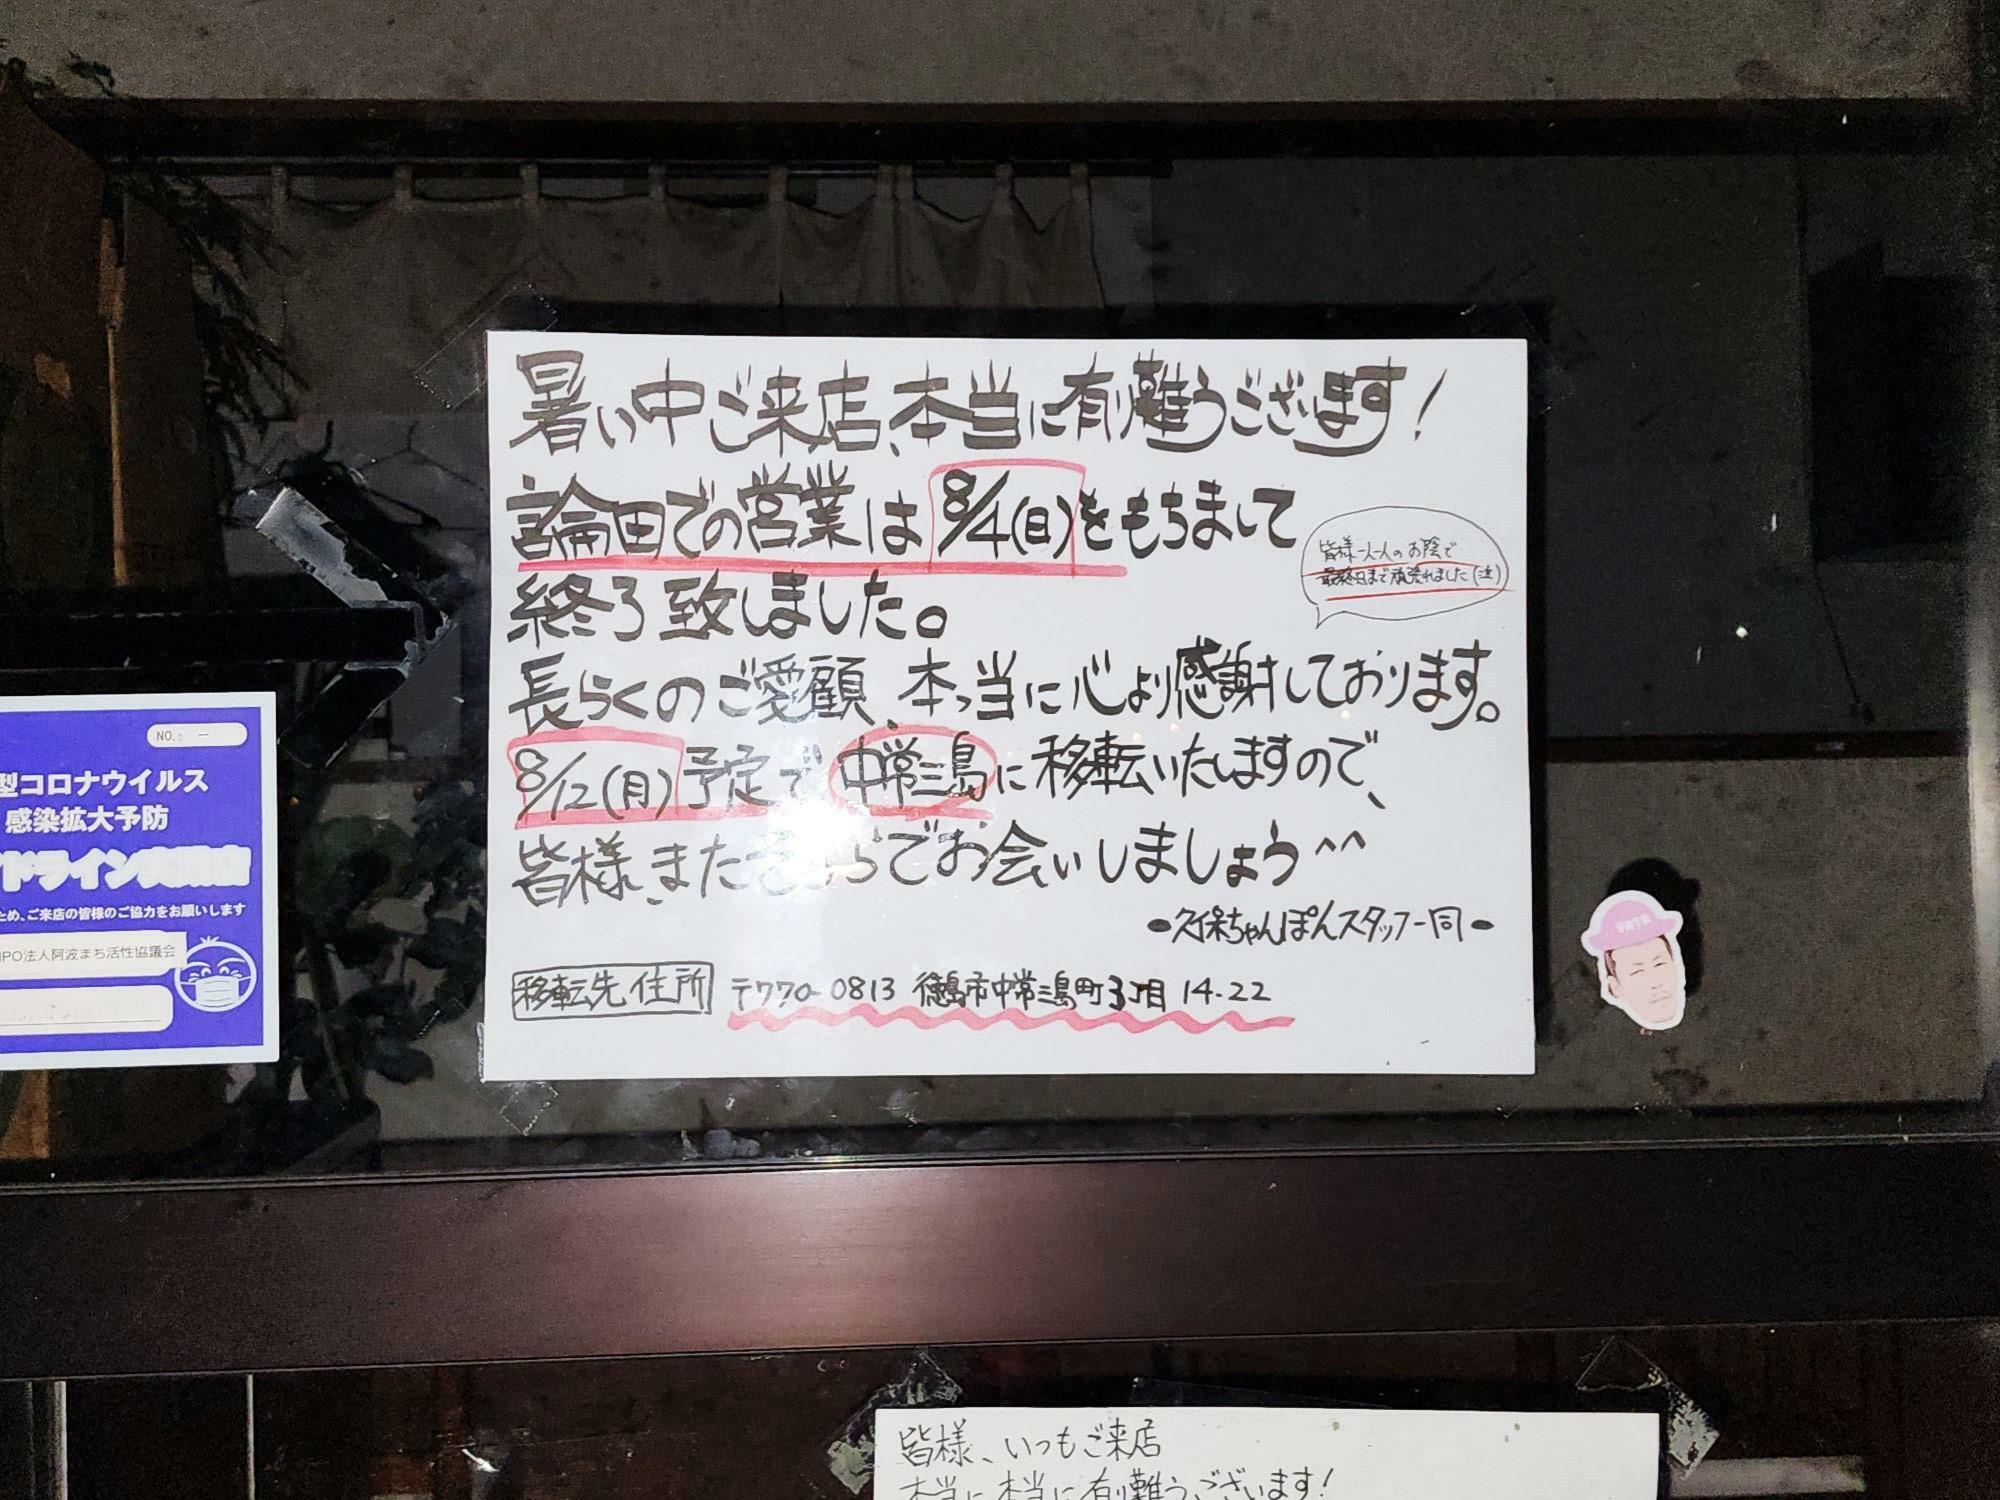 暑い中ご来店、本当に有難うございます!
論田での営業は8/4(日)をもちまして
皆様一人一人のお陰で
最終日まで頑張れました(泣)
終了致しました。
長らくのご愛顧、本っ当に心より感謝しております。
8/12(月)予定で中常三島に移転いたしますので、
皆様、またそちらでお会いしましょう^^
久保ちゃんぽんスタッフ一同
移転先住所 〒770-0813 徳島市中常三島町3丁目14-22
NO.
型コロナウイルス
感染拡大予防
ドライン実施店
ため、ご来店の皆様のご協力をお願いします
NPO法人阿波まち活性協議会
皆様、いつもご来店
本当に本当に有難うございます!